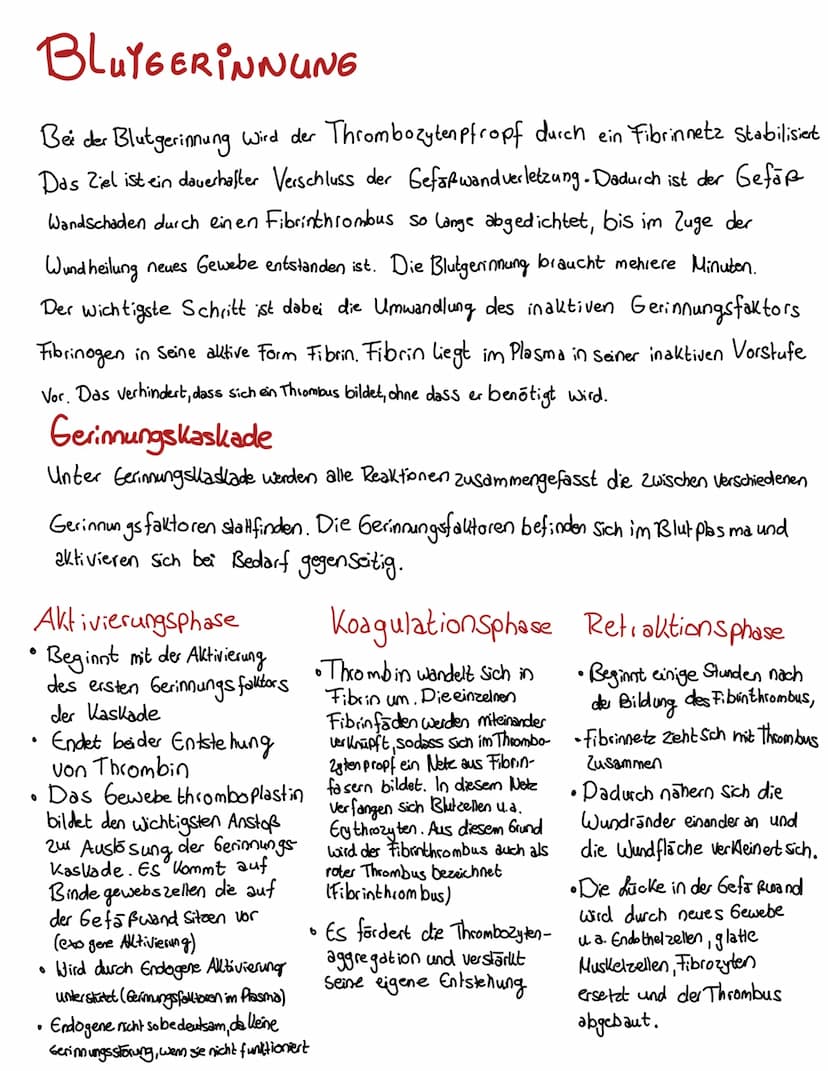 BLUTGERINNUNG
Bei der Blutgerinnung wird der Thrombozytenpfropf durch ein Fibrinnetz stabilisiert
Das Ziel ist ein dauerhafter Verschluss der Gefäßwandverletzung. Dadurch ist der Gefäß
Wandschaden durch einen Fibrinthrombus so lange abgedichtet, bis im Zuge der
Wundheilung neues Gewebe entstanden ist. Die Blutgerinnung braucht mehrere Minuten.
Der wichtigste Schritt ist dabei die Umwandlung des inaktiven Gerinnungsfaktors
Fibrinogen in seine aktive Form Fibrin. Fibrin liegt im Plasma in seiner inaktiven Vorstufe
vor. Das verhindert, dass sich ein Thrombus bildet, ohne dass er benötigt wird.
Gerinnungskaskade
Unter Gerinnungskaskade werden alle Reaktionen zusammengefasst die zwischen verschiedenen
Gerinnungsfaktoren stattfinden. Die Gerinnungsfaktoren befinden sich im Blutplasma und
aktivieren sich bei Bedarf gegenseitig.
Aktivierungsphase
• Beginnt mit der Aktivierung
des ersten Gerinnungsfaktors
der Kaskade
• Endet bei der Entstehung
von Thrombin
• Das Gewebethromboplastin
bildet den wichtigsten Anstoß
zur Auslösung der Gerinnungs-
Kaskade. Es kommt auf
Bindegewebszellen die auf
der Gefäßwand sitzen vor
(exogene Aktivierung)
• Wird durch Endogene Aktivierung
unterstützt (Gerinnungsfaktoren im Plasma)
• Endogene nicht so bedeutsam, da keine
Gerinnungsstörung, wenn sie nicht funktioniert
Koagulationsphase
• Thrombin wandelt sich in
Fibrin um. Die einzelnen
Fibrinfäden werden miteinander
verknüpft, sodass sich im Thrombo-
zytenpropf ein Netz aus Fibrin-
fasern bildet. In diesem Netz
verfangen sich Blutzellen u.a.
Erythrozyten. Aus diesem Grund
wird der Fibrinthrombus auch als
roter Thrombus bezeichnet
(Fibrinthrombus)
• Es fördert die Thrombozyten-
aggregation und verstärkt
seine eigene Entstehung
Retraktionsphase
• Beginnt einige Stunden nach
der Bildung des Fibrinthrombus,
• Fibrinnetz zeht sch mit Thrombus
zusammen
• Dadurch nähern sich die
Wundränder einander an und
die Wundfläche verkleinert sich.
• Die Lücke in der Gefäßwand
wird durch neues Gewebe
u.a. Endothelzellen, glatte
Muskelzellen, Fibrozyten
ersetzt und der Thrombus
abgebaut.